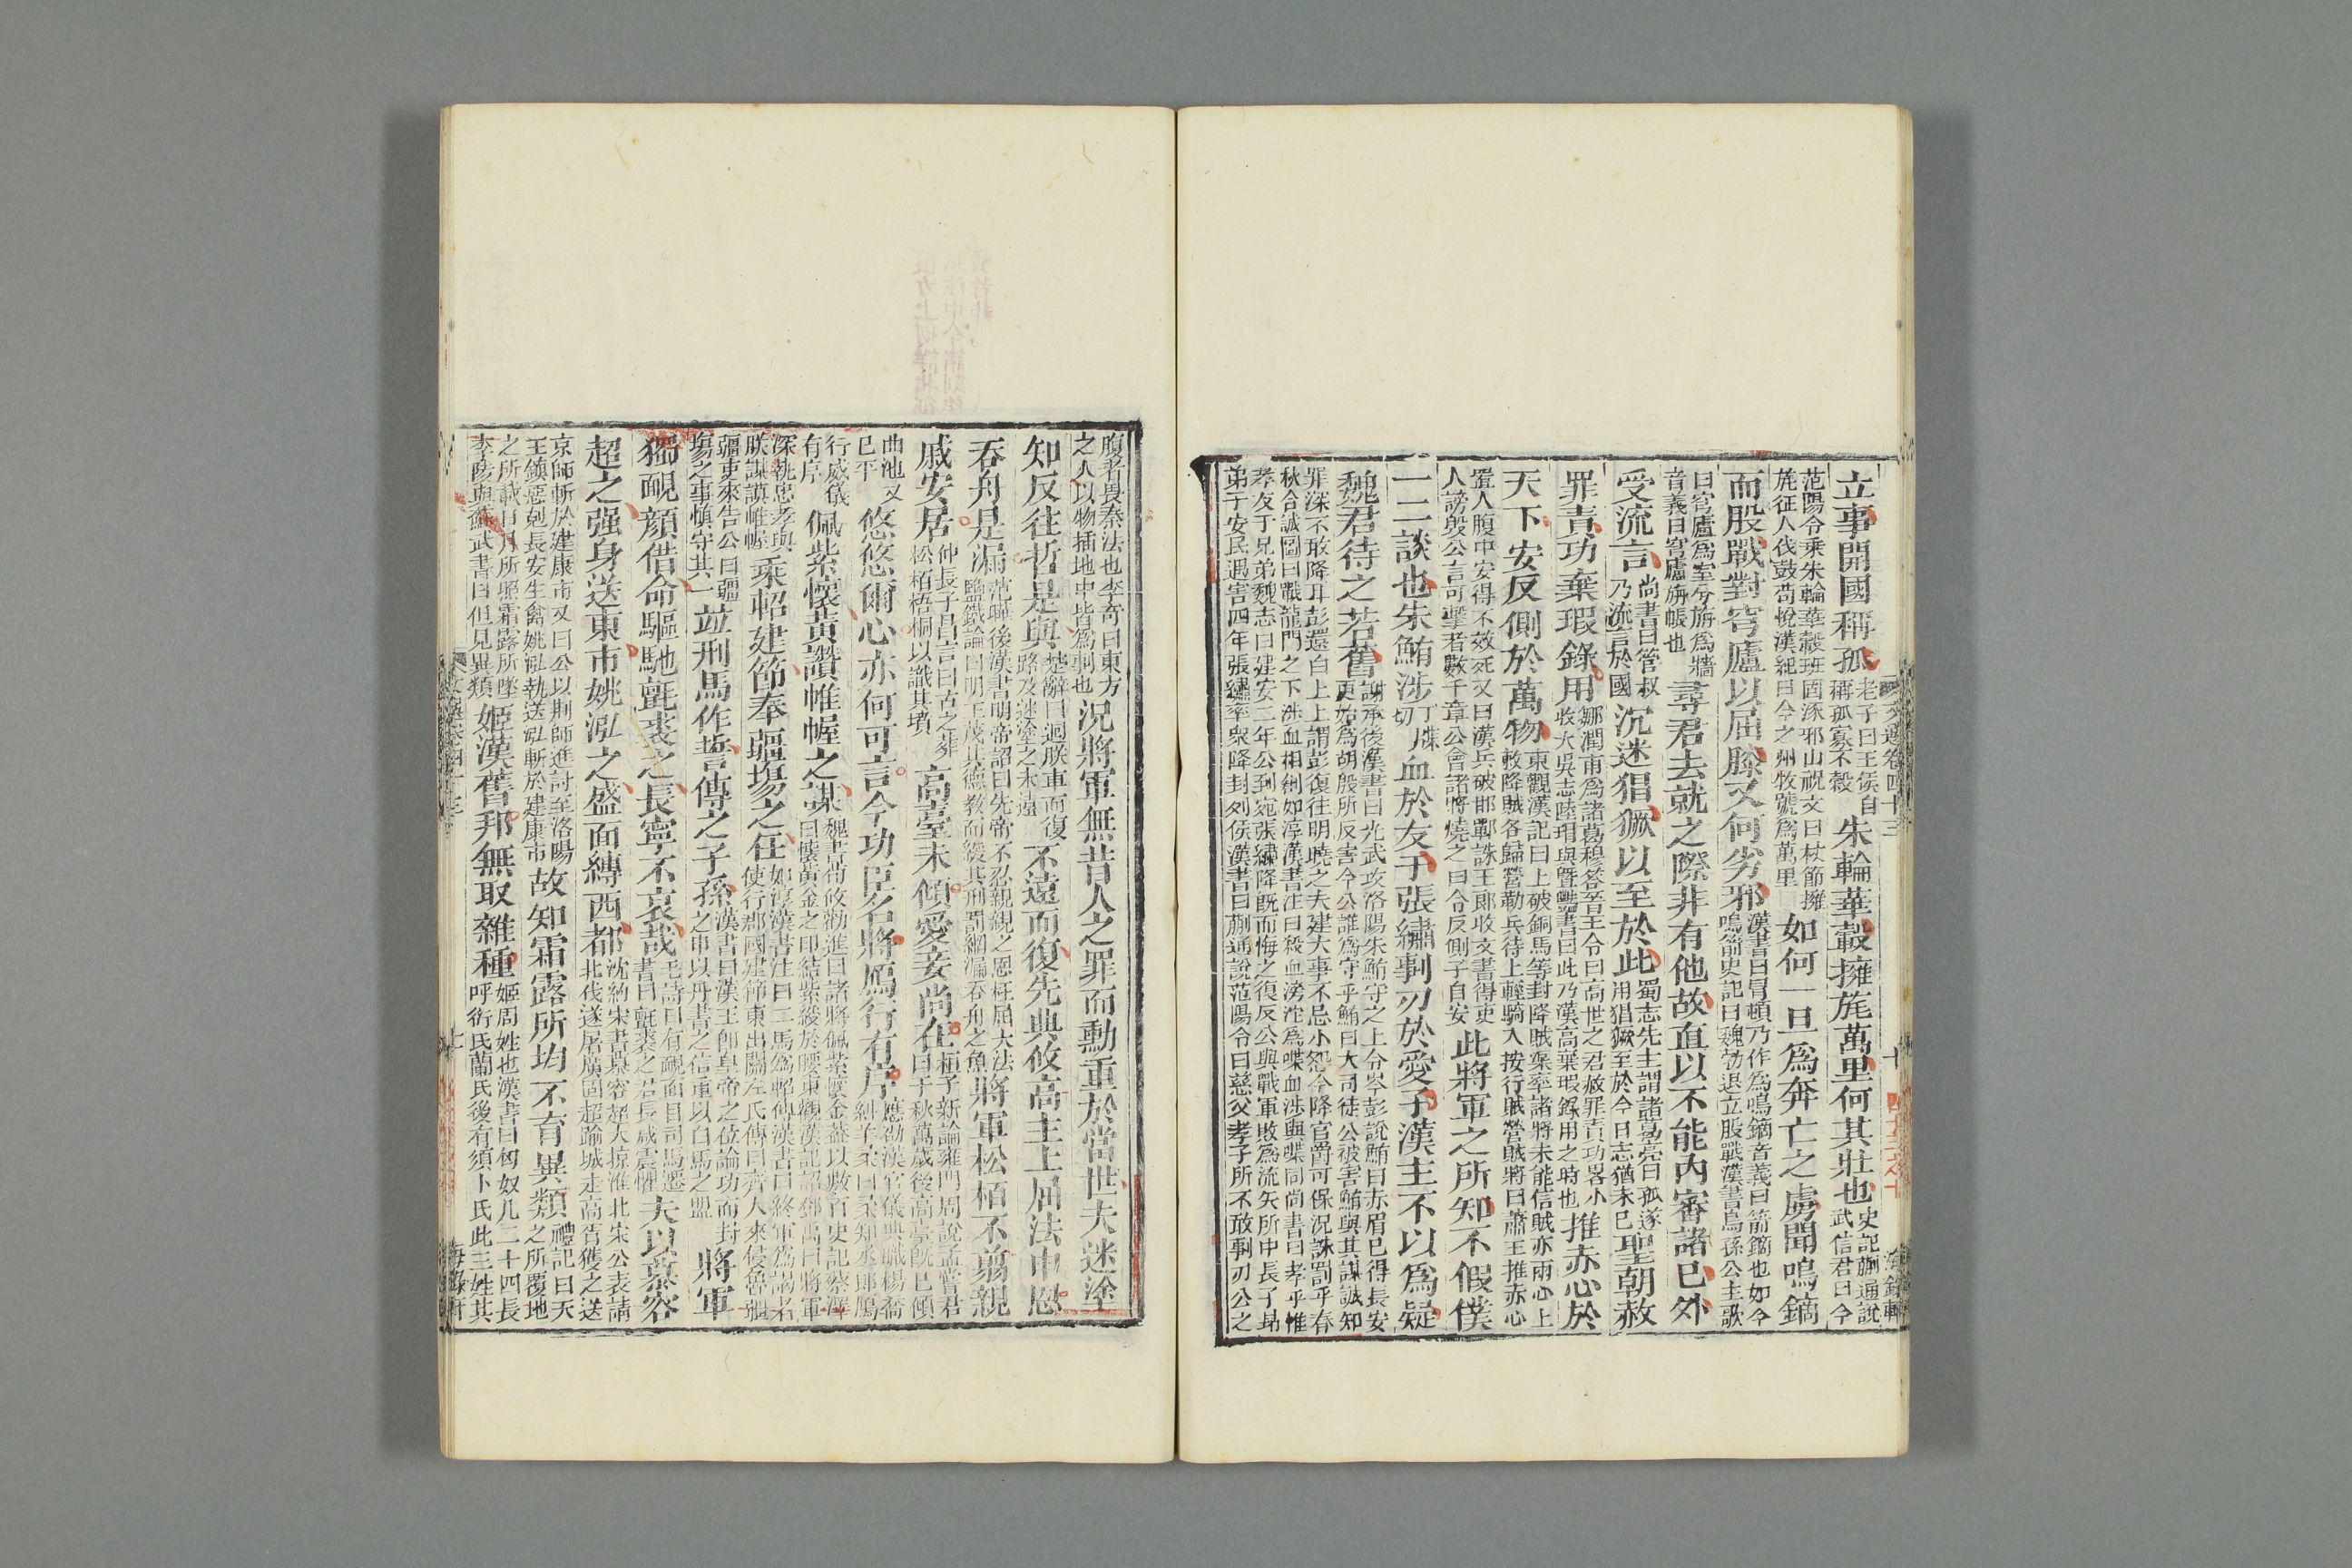 文選卷四十三 十 海錄軒
立事開國稱孤老子曰王侯自稱孤寡不穀朱輪華轂擁旄萬里何其壯也史記蒯通說武信君曰今
范陽令乘朱輪華轂班固涿邪山祝文曰杖節擁旄征人伐鼓荀悅漢紀曰今之州牧號爲萬里如何一旦爲奔亡之虜聞鳴鏑
而股戰對穹廬以屈膝又何劣邪漢書曰冒頓乃作爲鳴鏑音義曰箭鏑也如今鳴箭史記曰魏勃退立股戰漢書烏孫公主歌
曰穹廬爲室兮旃爲牆音義曰穹廬旃帳也尋君去就之際非有他故直以不能內審諸己外
受流言尚書曰管叔乃流言於國沉迷猖獗以至於此蜀志先主謂諸葛亮曰孤遂用猖獗至於今日志猶未已聖朝赦
罪責功棄瑕錄用鄒潤甫爲諸葛穆答晉王令曰高世之君赦罪責功畧小收大吳志陸瑁與曁豔書曰此乃漢高棄瑕錄用之時也推赤心於
天下安反側於萬物東觀漢記曰上破銅馬等封降賊渠率諸將未能信賊亦兩心上敕降賊各歸營勒兵待上輕騎入按行賊營賊將曰蕭王推赤心
置人腹中安得不效死又曰漢兵破邯鄲誅王郎收文書得吏人謗毀公言可擊者數千章公會諸將燒之曰令反側子自安此將軍之所知不假僕
一二談也朱鮪涉丁牒切血於友于張繡剚刃於愛子漢主不以爲疑
魏君待之若舊謝承後漢書曰光武攻洛陽朱鮪守之上令岑彭說鮪曰赤眉已得長安更始爲胡殷所反害今公誰爲守乎鮪曰大司徒公被害鮪與其謀誠知
罪深不敢降耳彭還白上上謂彭復往明曉之夫建大事不忌小怨今降官爵可保況誅罰乎春秋合誠圖曰戰龍門之下涉血相創如淳漢書注曰殺血滂沱爲喋血涉與喋同尚書曰孝乎惟
孝友于兄弟魏志曰建安二年公到宛張繡降旣而悔之復反公與戰軍敗爲流矢所中長子昂弟子安民遇害四年張繡率衆降封列侯漢書曰蒯通說范陽令曰慈父孝子所不敢剚刃公之
腹者畏秦法也李奇曰東方之人以物插地中皆爲剚也況將軍無昔人之罪而勳重於當世夫迷塗
知反往哲是與楚辭曰迴朕車而復路及迷塗之未遠不遠而復先典攸高主上屈法申恩
吞舟是漏范曄後漢書明帝詔曰先帝不忍親親之恩枉屈大法鹽鐵論曰明王茂其德敎而緩其刑罰網漏吞舟之魚將軍松栢不翦親
戚安居仲長子昌言曰古之葬松栢梧桐以識其墳高臺未傾愛妾尚在桓子新論雍門周說孟嘗君曰千秋萬歲後高臺旣已傾
曲池又已平悠悠爾心亦何可言今功臣名將鴈行有序應劭漢官儀典職楊喬糾羊柔曰柔知丞郎鴈
行威儀有序佩紫懷黃讚帷幄之謀魏書荀攸勸進曰諸將佩紫懷金蓋以數百史記蔡澤曰懷黃金之印結紫綬於腰東觀漢記詔鄧禹曰將軍
深執忠孝與朕謀謨帷幄乘軺建節奉疆埸之任如淳漢書注曰二馬爲軺傳漢書曰終軍爲謁者使行郡國建節東出關左氏傳曰齊人來侵魯疆
疆吏來告公曰疆埸之事愼守其一竝刑馬作誓傳之子孫漢書曰漢王卽皇帝之位論功而封之申以丹書之信重以白馬之盟將軍
獨靦顏借命驅馳氈裘之長寧不哀哉毛詩曰有靦面目司馬遷書曰氈裘之君長咸震懼夫以慕容
超之强身送東市姚泓之盛面縛西都沈約宋書慕容超大掠淮北宋公表請北伐遂屠廣固超踰城走高胥獲之送
京師斬於建康市又曰公以荆師進討至洛陽王鎮惡剋長安生禽姚泓執送泓斬於建康市故知霜露所均不育異類禮記曰天之所覆地
之所載日月所照霜露所墜李陵與蘇武書曰但見異類姬漢舊邦無取雜種姬周姓也漢書曰匈奴凡二十四長呼衍氏蘭氏後有須卜氏此三姓其
文選卷四十三 十 海錄軒